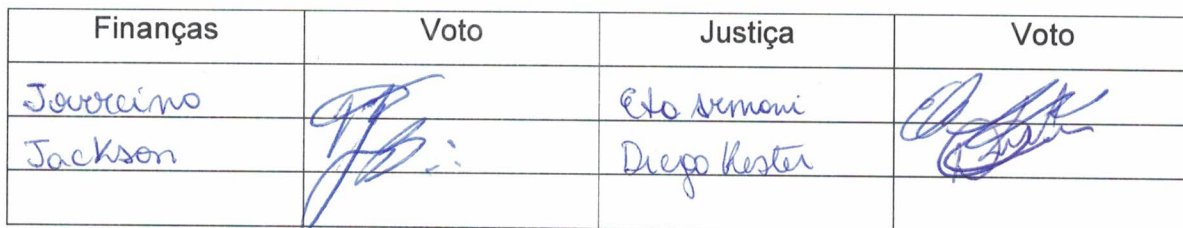 Finanças Voto Justiça Voto
Jovrcino Eto Armoni
Jackson Diego Kester